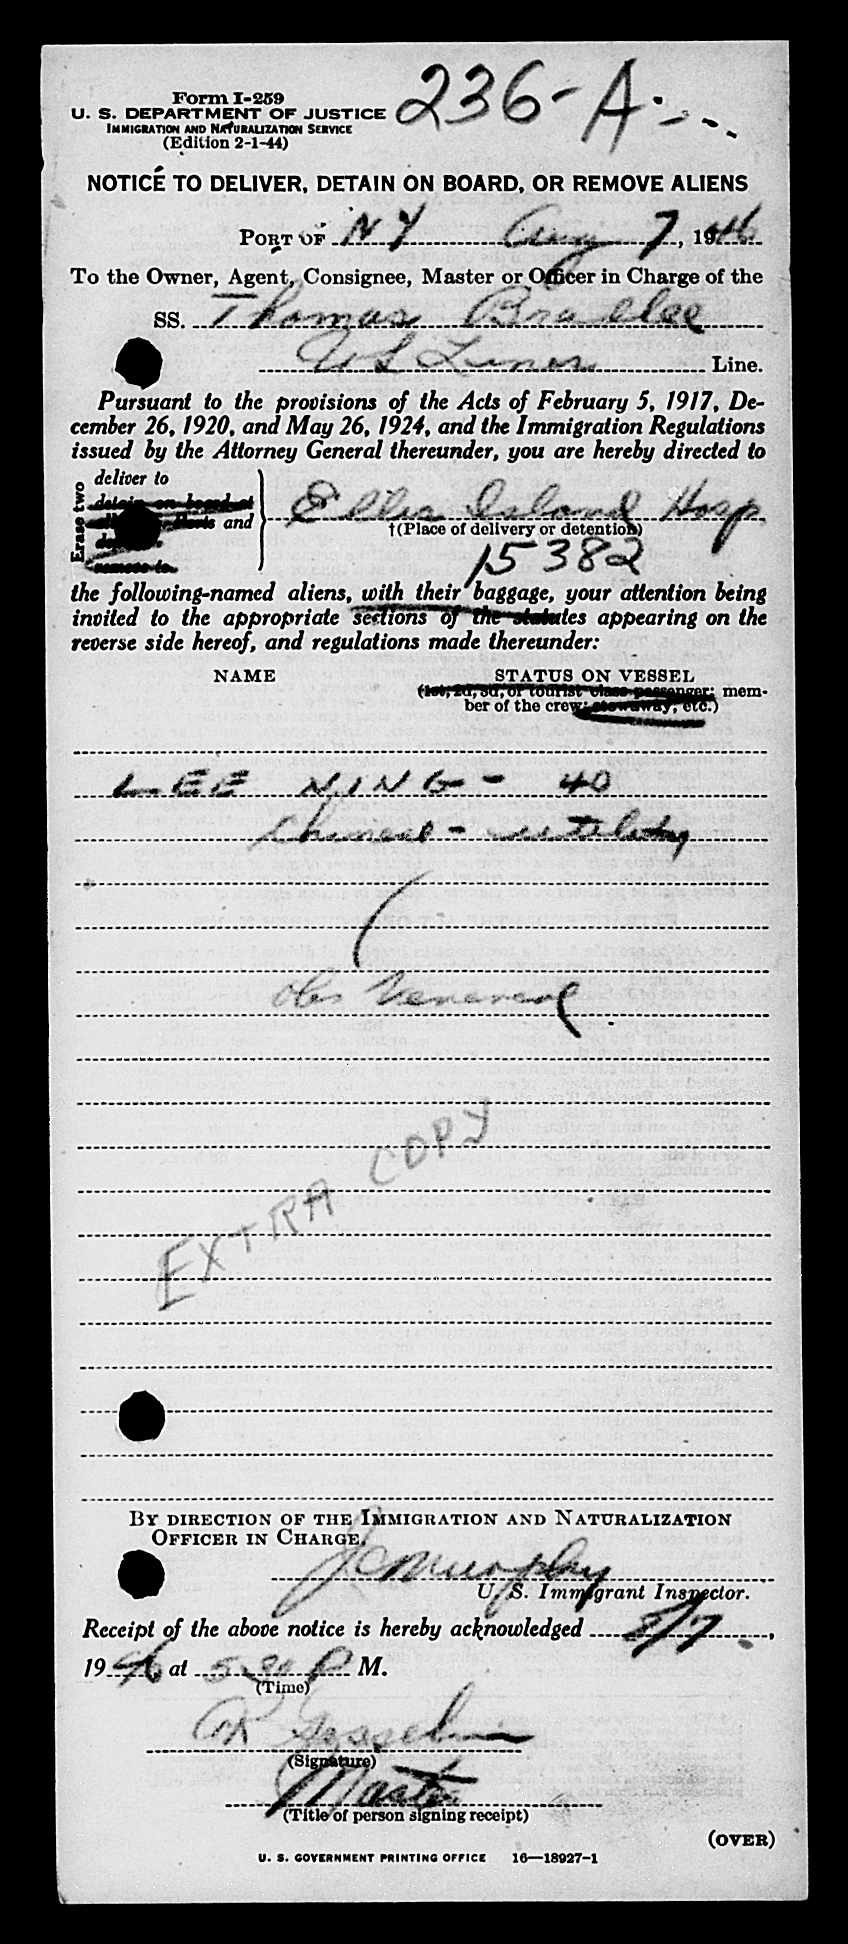 Form I-259
U. S. DEPARTMENT OF JUSTICE
IMMIGRATION AND NATURALIZATION SERVICE
(Edition 2-1-44)
236-A
NOTICE TO DELIVER, DETAIN ON BOARD, OR REMOVE ALIENS
PORT OF NY Aug 7, 1946
To the Owner, Agent, Consignee, Master or Officer in Charge of the
SS. Thomas Bradlee
US Lines Line.
Pursuant to the provisions of the Acts of February 5, 1917, De-
cember 26, 1920, and May 26, 1924, and the Immigration Regulations
issued by the Attorney General thereunder, you are hereby directed to
Erase two
deliver to
detain on board at
and
remove to
Ellis Island Hosp
†(Place of delivery or detention)
15382
the following-named aliens, with their baggage, your attention being
invited to the appropriate sections of the statutes appearing on the
reverse side hereof, and regulations made thereunder:
NAME STATUS ON VESSEL
(1st, 2d, 3d, or tourist class passenger; mem-
ber of the crew; stowaway, etc.)
LEE NING - 40
Chinese - utility
Obs Venereal
EXTRA COPY
BY DIRECTION OF THE IMMIGRATION AND NATURALIZATION
OFFICER IN CHARGE.
J C Murphy
U. S. Immigrant Inspector.
Receipt of the above notice is hereby acknowledged 8/7,
1946, at 5:30 P M.
(Time)
(Signature)
Master
(Title of person signing receipt)
(OVER)
U. S. GOVERNMENT PRINTING OFFICE 16—18927-1